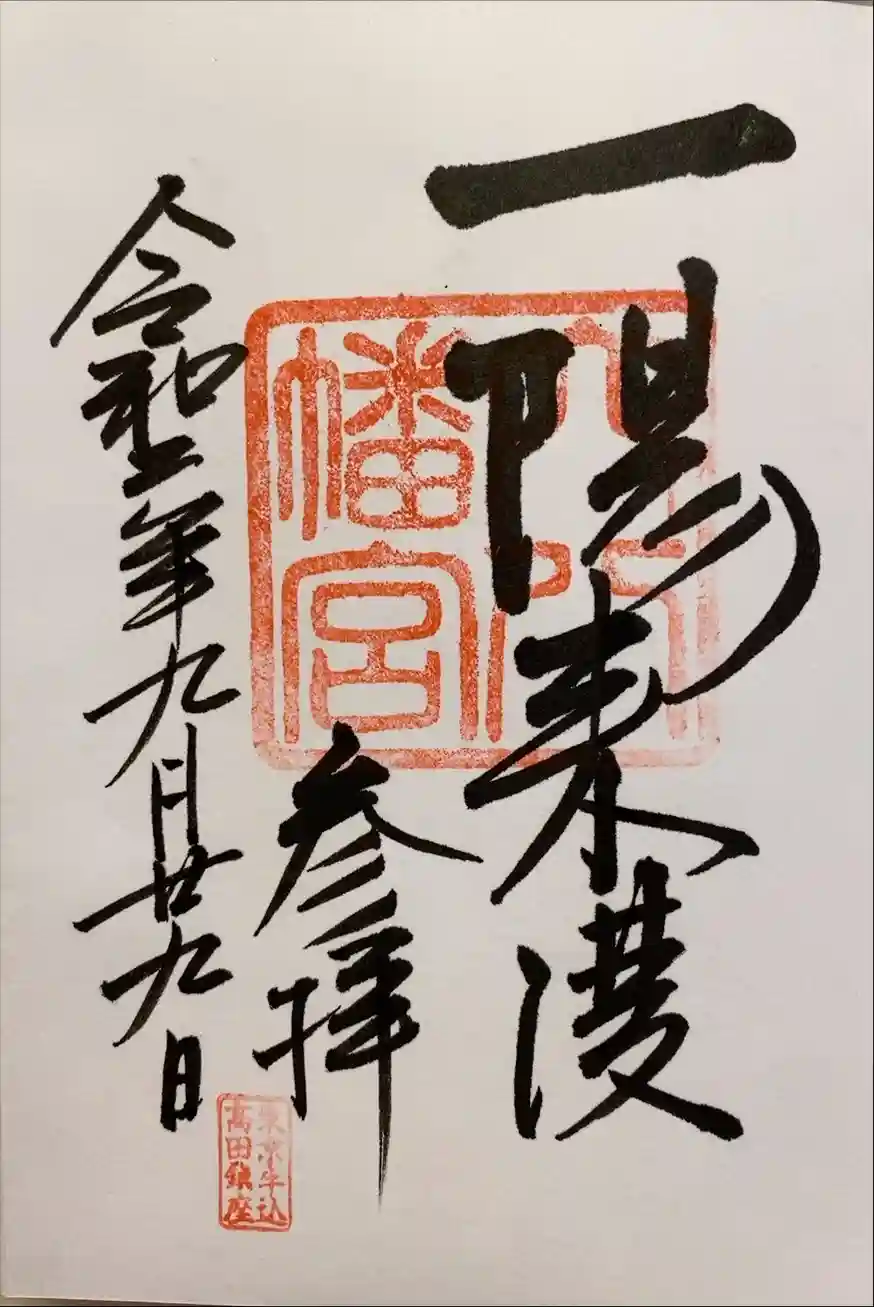 一陽来復
穴八
幡宮
参拝
令和二年九月廿九日
東京牛込
高田鎮座